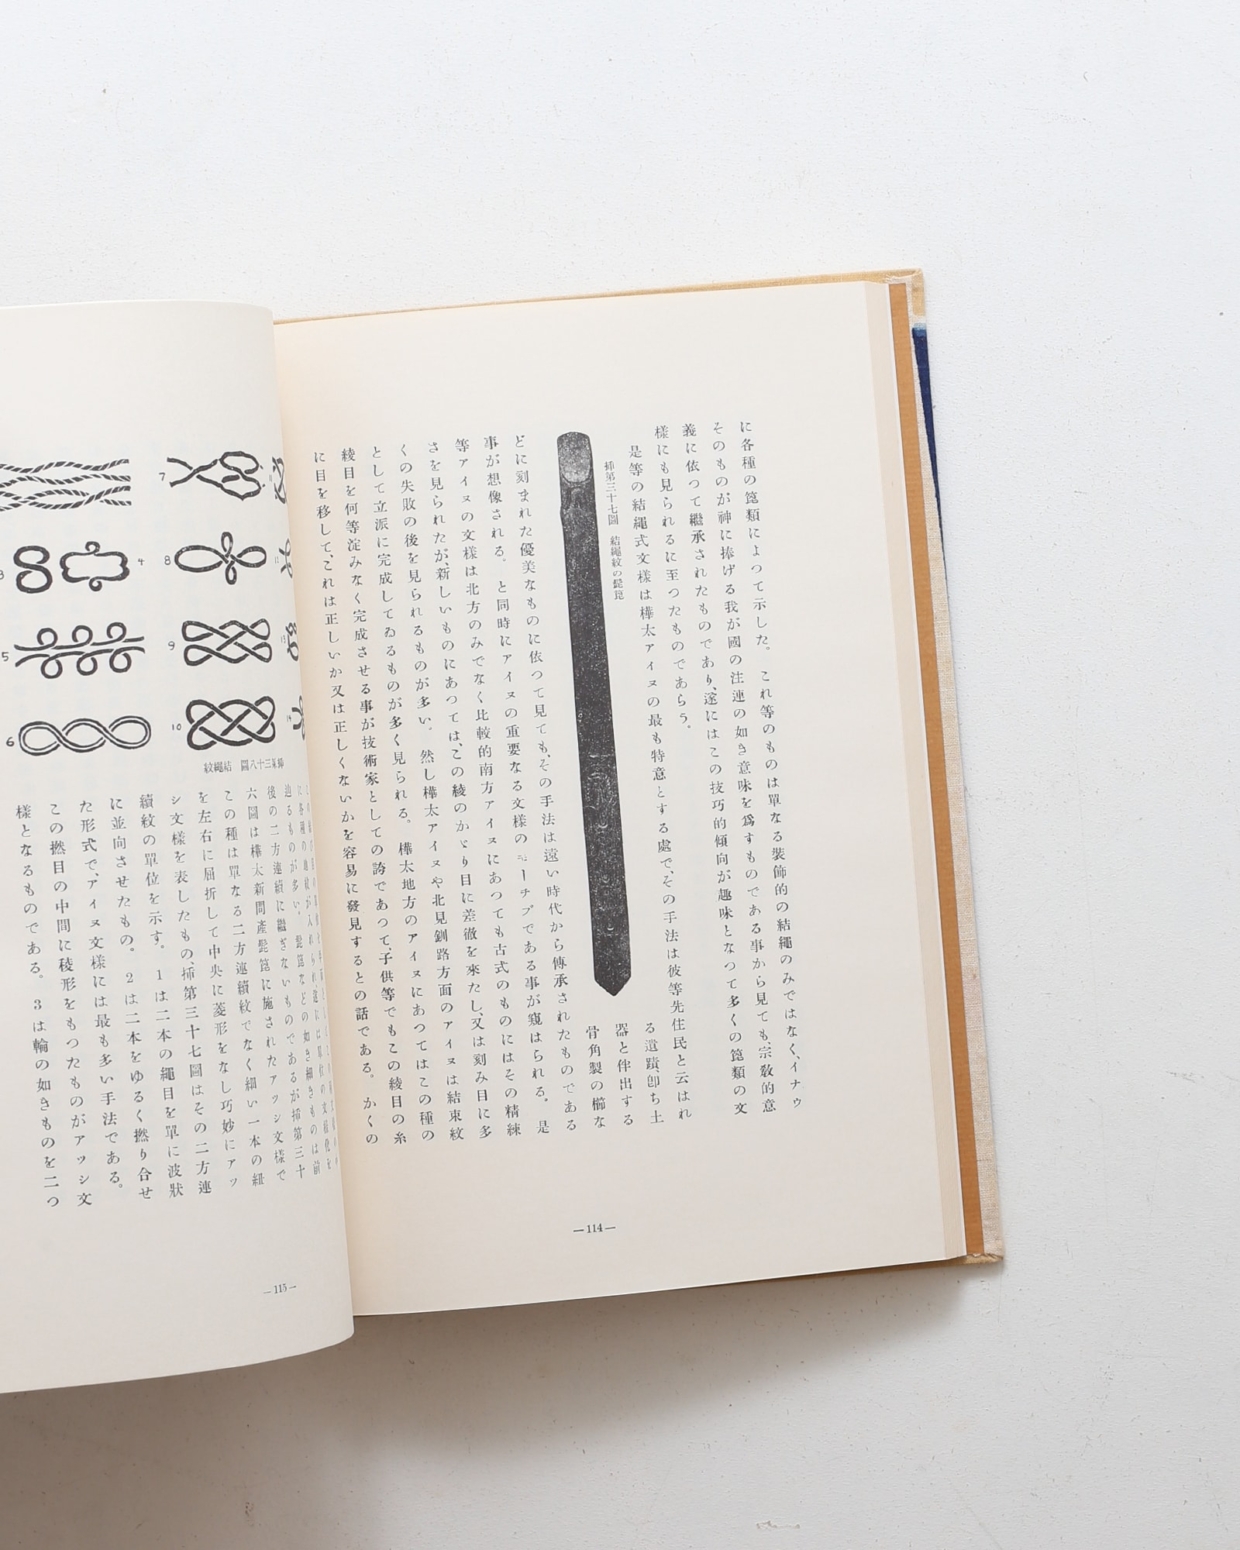 に各種の箆類によつて示した。　これ等のものは單なる裝飾的の結繩のみではなく、イナゥ
そのものが神に捧げる我が國の注連の如き意味を爲すものである事から見ても、宗敎的意
義に依つて繼承されたものであり、遂にはこの技巧的傾向が趣味となつて多くの箆類の文
樣にも見られるに至つたものであらう。
是等の結繩式文樣は樺太アイヌの最も特意とする處で、その手法は彼等先住民と云はれ
る遺蹟、卽ち土
器と伴出する
骨角製の櫛な
揷第三十七圖　結繩紋の髭箆
どに刻まれた優美なものに依つて見ても、その手法は遠い時代から傳承されたものである
事が想像される。　と同時にアイヌの重要なる文樣のモーチブである事が窺はられる。　是
等アイヌの文樣は北方のみでなく比較的南方アイヌにあつても古式のものにはその精練
さを見られたが、新しいものにあつては、この綾のかゝり目に差徹を來たし、又は刻み目に多
くの失敗の後を見られるものが多い。　然し樺太アイヌや北見釧路方面のアイヌは結束紋
として立派に完成してゐるものが多く見られる。　樺太地方のアイヌにあつてはこの種の
綾目を何等淀みなく完成させる事が技術家としての誇であつて、子供等でもこの綾目の糸
に目を移して、これは正しいか又は正しくないかを容易に發見するとの話である。　かくの
—114—
7
8
9
10
4
3
5
6
揷第三十八圖　結繩紋
辿るものが多い。　髭箆などの如き細きものは前
後の二方連續に繼ぎないものであるが揷第三十
六圖は樺太新問產髭箆に施されたアツシ文樣で
この種は單なる二方連續紋でなく細い一本の紐
を左右に屈折して中央に菱形をなし巧妙にアツ
シ文樣を表したもの、揷第三十七圖はその二方連
續紋の單位を示す。　1は二本の繩目を單に波狀
に並向させたもの。　2は二本をゆるく撚り合せ
た形式で、アイヌ文樣には最も多い手法である。
この撚目の中間に稜形をもつたものがアツシ文
樣となるものである。　3は輪の如きものを二つ
—115—